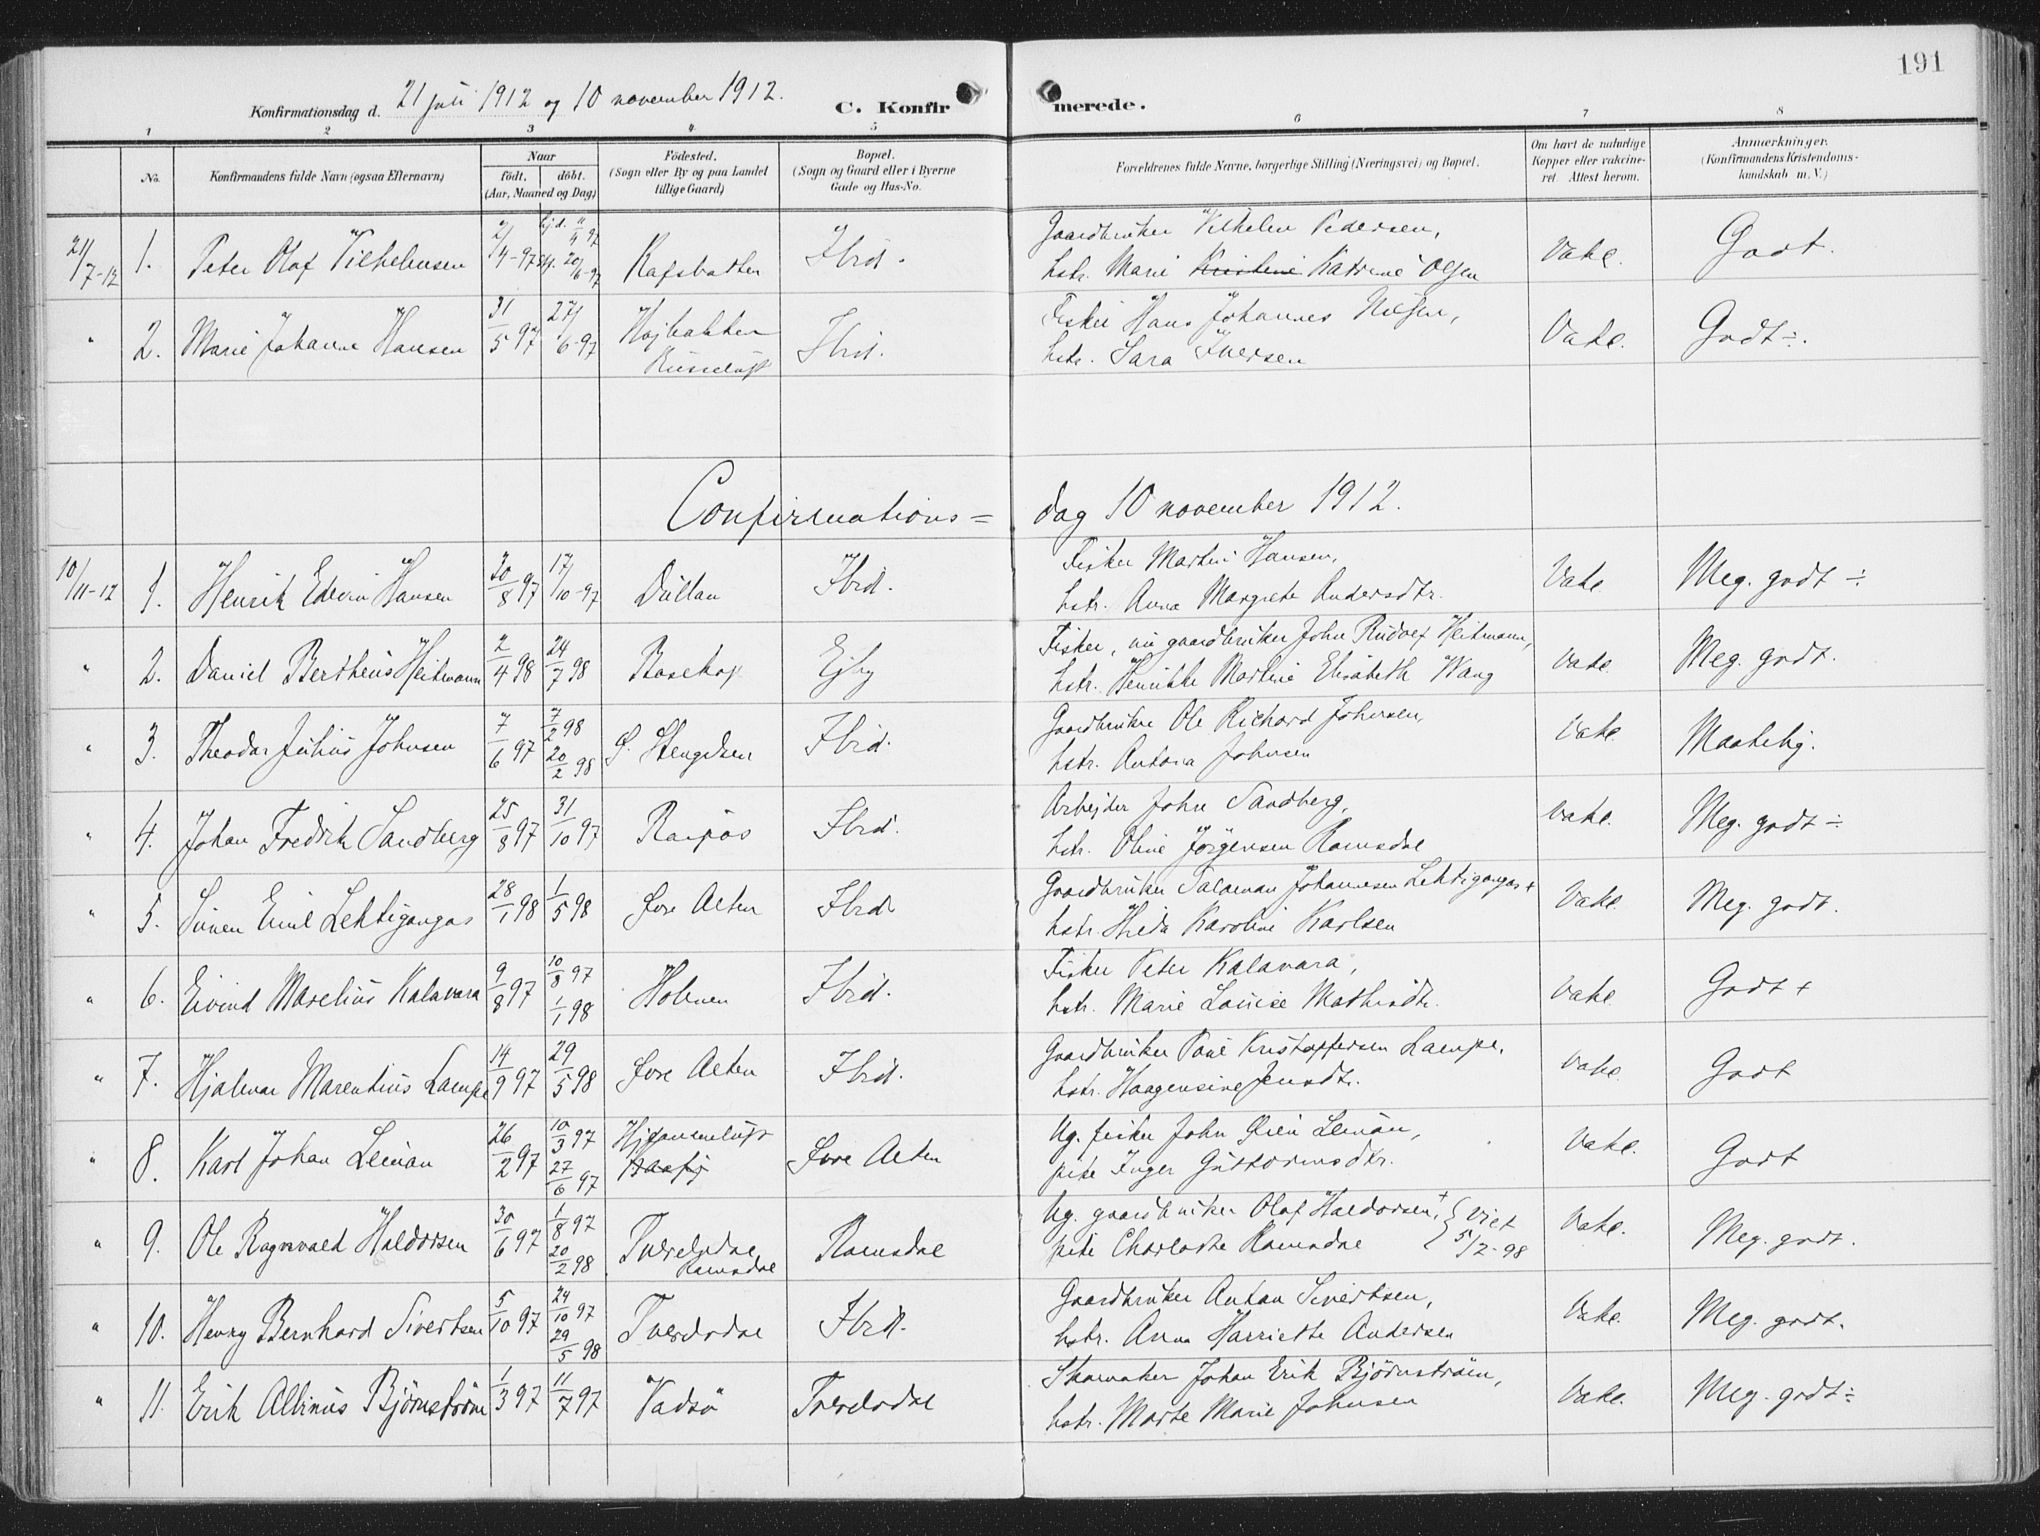 191
Konfirmationsdag d. 21 juli 1912 og 10 november 1912.
C. Konfirmerede.
1 2 3 4 5 6 7 8
No.
Konfirmandens fulde Navn (ogsaa Efternavn)
Naar
født. døbt.
(Aar, Maaned og Dag)
Födested.
(Sogn eller By og paa Landet
tillige Gaard)
Bopæl.
(Sogn og Gaard eller i Byerne
Gade og Hus-No.
Forældrenes fulde Navne, borgerlige Stilling (Næringsvei) og Bopæl.
Om havt de naturlige
Kopper eller vakcine-
ret Attest herom.
Anmærkninger.
(Konfirmandens Kristendoms-
kundskab m. V.)
21/7-12 1. Peter Olaf Vilhelmsen 2/4-97 hjd. 11/4 97 20/6-97 Kafsbotten Ibid. Gaardbruker Vilhelm Pedersen,
hstr. Marie Kristine Katrine Olsen Vakc. Godt.
" 2. Marie Johanne Hansen 31/5 97 27/6-97 Højbakken
Russeluft Ibid. Fisker Hans Johannes Nilsen,
hstr. Sara Iversen Vakc. Godt ÷.
Confirmations= dag 10 november 1912.
10/11-12 1. Henrik Edvin Hansen 20/8 97 17/10-97 Ibid. Fisker Martin Hansen,
hstr. Anna Margrete Andersdtr. Vakc. Meg. godt ÷
" 2. Daniel Bertheus Heitmann 2/4 98 24/7 98 Bosekop Ejby Fisker, nu gaardbruker John Rudolf Heitmann,
hstr. Henrikke Martine Elisabeth Wang Vakc. Meg. godt.
" 3. Theodor Julius Johnsen 7/6 97 7/2 98
20/2 98 S. Stengelsen Ibid. Gaardbruker Ole Richard Johnsen,
hstr. Antona Johnsen Vakc. Maatelig.
" 4. Johan Fredrik Sandberg 25/8 97 31/10 97 Raipas Ibid. Arbejder John Sandberg,
hstr. Oline Jørgensen Ramsdal Vakc. Meg. godt ÷
" 5. Simen Emil Lehtigangas 28/1 98 1/5 98 Øvre Alten Ibid. Gaardbruker Salamon Johannesen Lehtigangas +
hstr. Hilda Karoline Karlsen Vakc. Meg. godt.
" 6. Eivind Marelius Kalavara 9/8 97 10/8 97
1/1 98 Holmen Ibid. Fisker Peter Kalavara,
hstr. Marie Louise Mathisdtr. Vakc. Godt +
" 7. Hjalmar Marentius Lampe 14/9 97 29/5 98 Øvre Alten Ibid. Gaardbruker Paul Kristoffersen Lampe,
hstr. Haagensine Jensdtr. Vakc. Godt
" 8. Karl Johan Leinan 26/2 97 10/3 97
27/6 97 Øvre Alten Ug. fisker John Leinan,
pike Inger Guttormsdtr. Vakc. Godt
" 9. Ole Ragnvald Haldorsen 30/6 97 1/8 97
20/2 98 Tverelvdal
Ramsdal Ramsdal Ug. gaardbruker Olaf Haldorsen, +
pike Charlotte Ramsdal } viet 5/2-98 Vakc. Meg. godt.
" 10. Henry Bernhard Sivertsen 5/10 97 24/10 97
29/5 98 Tverelvdal Ibid. Gaardbruker Anton Sivertsen,
hstr. Anna Harriette Andersen Vakc. Meg. godt.
" 11. Erik Albinus Bjørnstrøm 1/3 97 11/7 97 Vadsø Tverelvdal Skomaker Johan Erik Bjørnstrøm,
hstr. Marte Marie Johnsen Vakc. Meg. godt ÷